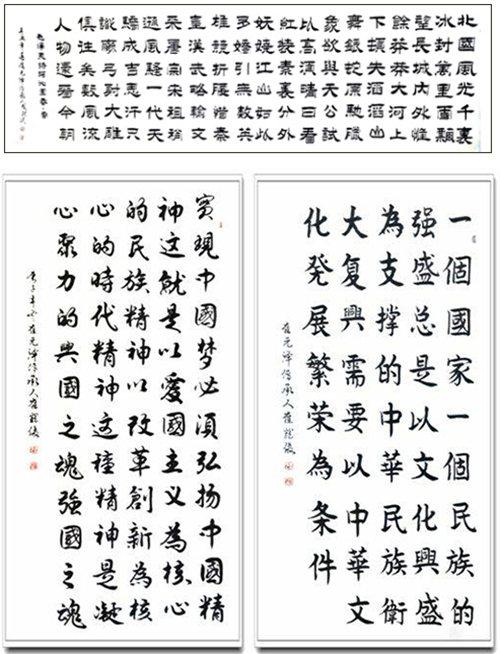 北國風光千裏
冰封萬里雪飄
望長城內外惟
餘莽莽大河上
下頓失滔滔山
舞銀蛇原馳蠟
象欲與天公試
比高須晴日看
紅裝素裹分外
妖嬈江山如此
多嬌引無數英
雄競折腰惜秦
皇漢武略輸文
采唐宗宋祖稍
遜風騷一代天
驕成吉思汗只
識彎弓射大雕
俱往矣數風流
人物還看今朝
毛澤東詩詞沁園春雪
一個國家一個民族的
强盛总是以文化興盛
為支撑的中華民族衛
大复興需要以中華文
化発展繁荣為条件
崔元泽传承人崔
實現中國梦必須弘扬中國精
神這就是以愛國主义為核心
的民族精神以改革創新為核
心的時代精神這種精神是凝
心聚力的興國之魂強國之魂
崔元泽传承人崔